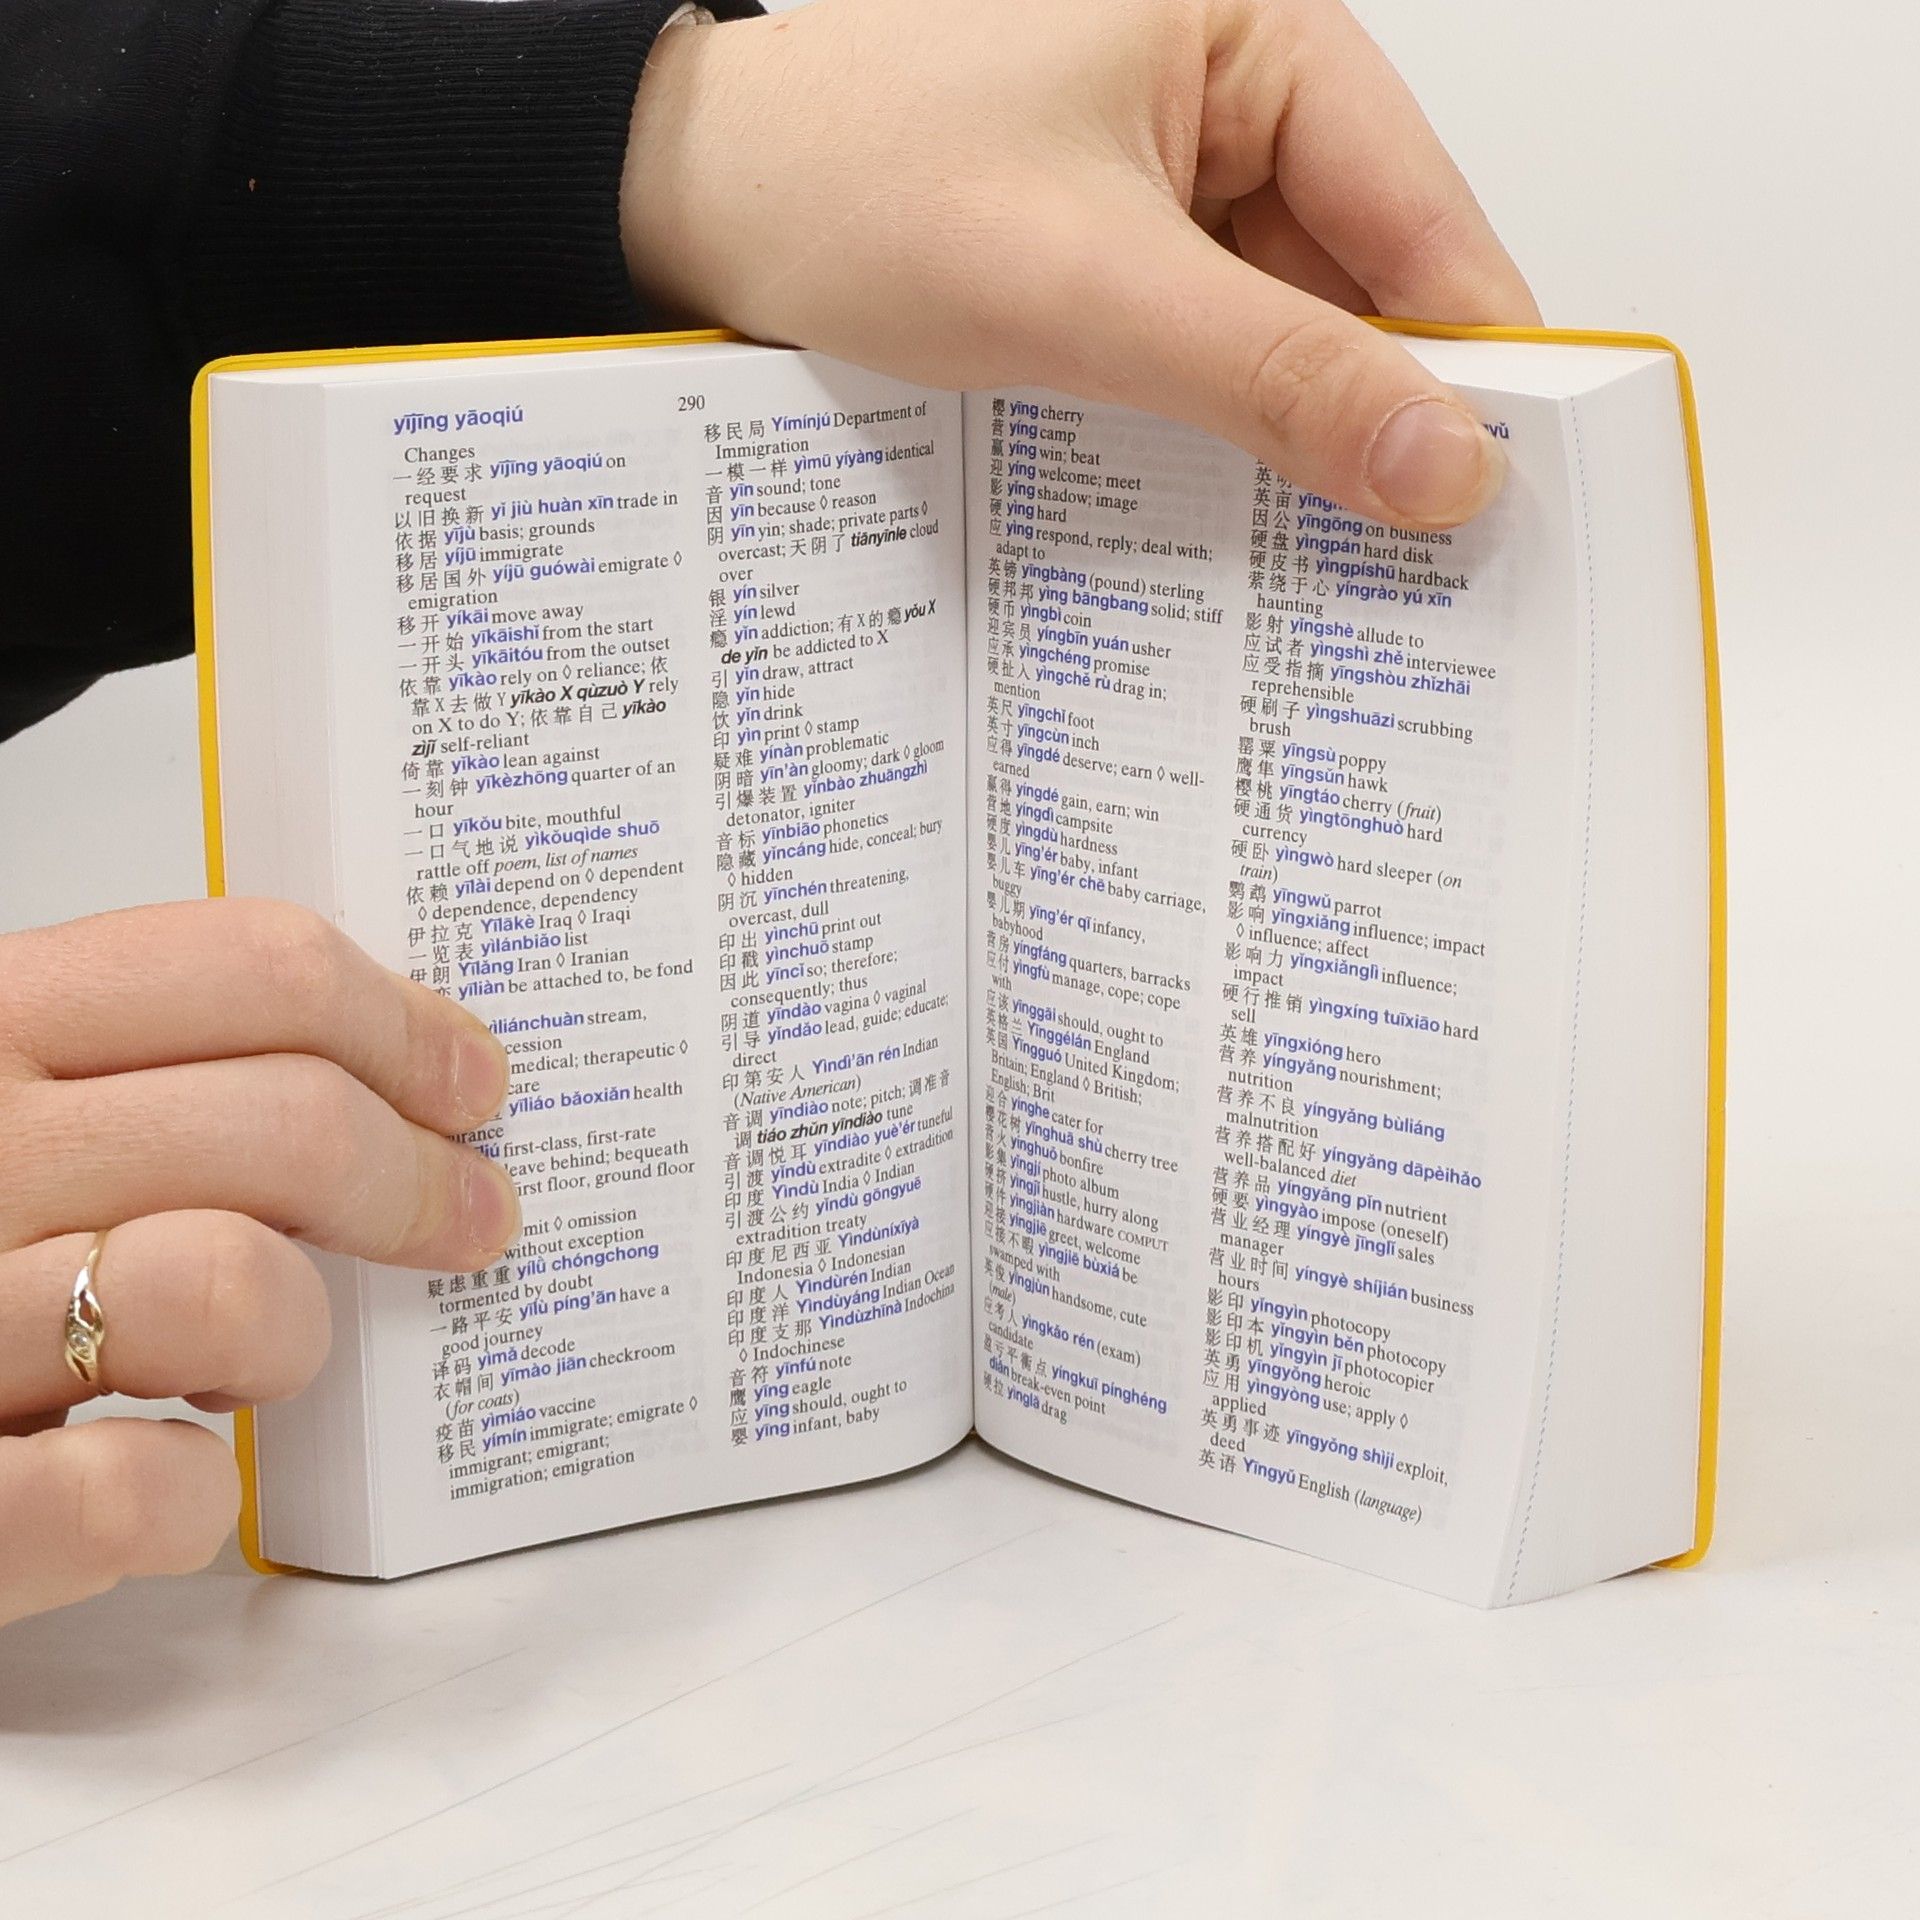 yījīng yāoqiú
290
Changes
一经要求 yījīng yāoqiú on
request
以旧换新 yǐ jiù huàn xīn trade in
依据 yījù basis; grounds
移居 yíjū immigrate
移居国外 yíjū guówài emigrate ◊
emigration
移开 yíkāi move away
一开始 yīkāishǐ from the start
一开头 yīkāitóu from the outset
依靠 yīkào rely on ◊ reliance; 依
靠X去做Y yīkào X qùzuò Y rely
on X to do Y; 依靠自己 yīkào
zìjǐ self-reliant
倚靠 yǐkào lean against
一刻钟 yīkèzhōng quarter of an
hour
一口 yīkǒu bite, mouthful
一口气地说 yìkǒuqìde shuō
rattle off poem, list of names
依赖 yīlài depend on ◊ dependent
◊ dependence, dependency
伊拉克 Yīlākè Iraq ◊ Iraqi
一览表 yìlánbiǎo list
伊朗 Yīlǎng Iran ◊ Iranian
yīliàn be attached to, be fond
yìliánchuàn stream,
medical; therapeutic ◊
care
yīliáo bǎoxiǎn health
first-class, first-rate
leave behind; bequeath
first floor, ground floor
◊ omission
without exception
疑虑重重 yílǜ chóngchong
tormented by doubt
一路平安 yīlù píng'ān have a
good journey
译码 yìmǎ decode
衣帽间 yīmào jiān checkroom
(for coats)
疫苗 yìmiáo vaccine
移民 yímín immigrate; emigrate ◊
immigrant; emigrant;
immigration; emigration
移民局 Yímínjú Department of
Immigration
一模一样 yìmú yíyàng identical
音 yīn sound; tone
因 yīn because ◊ reason
阴 yīn yin; shade; private parts ◊
overcast; 天阴了 tiānyīnle cloud
over
银 yín silver
淫 yín lewd
瘾 yǐn addiction; 有X的瘾 yǒu X
de yǐn be addicted to X
引 yǐn draw, attract
隐 yǐn hide
饮 yǐn drink
印 yìn print ◊ stamp
疑难 yínàn problematic
阴暗 yīn'àn gloomy; dark ◊ gloom
引爆装置 yǐnbào zhuāngzhì
detonator, igniter
音标 yīnbiāo phonetics
隐藏 yǐncáng hide, conceal; bury
◊ hidden
阴沉 yīnchén threatening,
overcast, dull
印出 yìnchū print out
印戳 yìnchuō stamp
因此 yīncǐ so; therefore;
consequently; thus
阴道 yīndào vagina ◊ vaginal
引导 yǐndǎo lead, guide; educate;
direct
印第安人 Yìndì'ān rén Indian
(Native American)
音调 yīndiào note; pitch; 调准音
调 tiáo zhǔn yīndiào tune
音调悦耳 yīndiào yuè'ér tuneful
引渡 yǐndù extradite ◊ extradition
印度 Yìndù India ◊ Indian
引渡公约 yǐndù gōngyuē
extradition treaty
印度尼西亚 Yìndùníxīyà
Indonesia ◊ Indonesian
印度人 Yìndùrén Indian
印度洋 Yìndùyáng Indian Ocean
印度支那 Yìndùzhīnà Indochina
◊ Indochinese
音符 yīnfú note
鹰 yīng eagle
应 yīng should, ought to
婴 yīng infant, baby
樱 yīng cherry
营 yíng camp
赢 yíng win; beat
迎 yíng welcome; meet
影 yǐng shadow; image
硬 yìng hard
应 yìng respond, reply; deal with;
adapt to
英镑 yīngbàng (pound) sterling
硬邦邦 yìng bāngbang solid; stiff
硬币 yìngbì coin
迎宾员 yíngbīn yuán usher
应承 yìngchéng promise
硬扯入 yìngchě rù drag in;
mention
英尺 yīngchǐ foot
英寸 yīngcùn inch
应得 yīngdé deserve; earn ◊ well-
earned
赢得 yíngdé gain, earn; win
营地 yíngdì campsite
硬度 yìngdù hardness
婴儿 yīng'ér baby, infant
婴儿车 yīng'ér chē baby carriage,
buggy
婴儿期 yīng'ér qī infancy,
babyhood
营房 yíngfáng quarters, barracks
应付 yìngfù manage, cope; cope
with
应该 yīnggāi should, ought to
英格兰 Yīnggélán England
英国 Yīngguó United Kingdom;
Britain; England ◊ British;
English; Brit
迎合 yínghe cater for
樱花树 yīnghuā shù cherry tree
营火 yínghuǒ bonfire
影集 yǐngjí photo album
硬挤 yìngjǐ hustle, hurry along
硬件 yìngjiàn hardware COMPUT
迎接 yíngjiē greet, welcome
应接不暇 yìngjiē bùxiá be
swamped with
英俊 yīngjùn handsome, cute
(male)
应考人 yìngkǎo rén (exam)
candidate
盈亏平衡点 yíngkuī pínghéng
diǎn break-even point
硬拉 yìnglā drag
英明
英亩
因公 yīngōng on business
硬盘 yìngpán hard disk
硬皮书 yìngpíshū hardback
萦绕于心 yíngrào yú xīn
haunting
影射 yǐngshè allude to
应试者 yìngshì zhě interviewee
应受指摘 yīngshòu zhǐzhāi
reprehensible
硬刷子 yìngshuāzi scrubbing
brush
罂粟 yīngsù poppy
鹰隼 yīngsǔn hawk
樱桃 yīngtáo cherry (fruit)
硬通货 yìngtōnghuò hard
currency
硬卧 yìngwò hard sleeper (on
train)
鹦鹉 yīngwǔ parrot
影响 yǐngxiǎng influence; impact
◊ influence; affect
影响力 yǐngxiǎnglì influence;
impact
硬行推销 yìngxíng tuīxiāo hard
sell
英雄 yīngxióng hero
营养 yíngyǎng nourishment;
nutrition
营养不良 yíngyǎng bùliáng
malnutrition
营养搭配好 yíngyǎng dāpèihǎo
well-balanced diet
营养品 yíngyǎng pǐn nutrient
硬要 yìngyào impose (oneself)
营业经理 yíngyè jīnglǐ sales
manager
营业时间 yíngyè shíjián business
hours
影印 yǐngyìn photocopy
影印本 yǐngyìn běn photocopy
影印机 yǐngyìn jī photocopier
英勇 yīngyǒng heroic
应用 yìngyòng use; apply ◊
applied
英勇事迹 yīngyǒng shìjì exploit,
deed
英语 Yīngyǔ English (language)